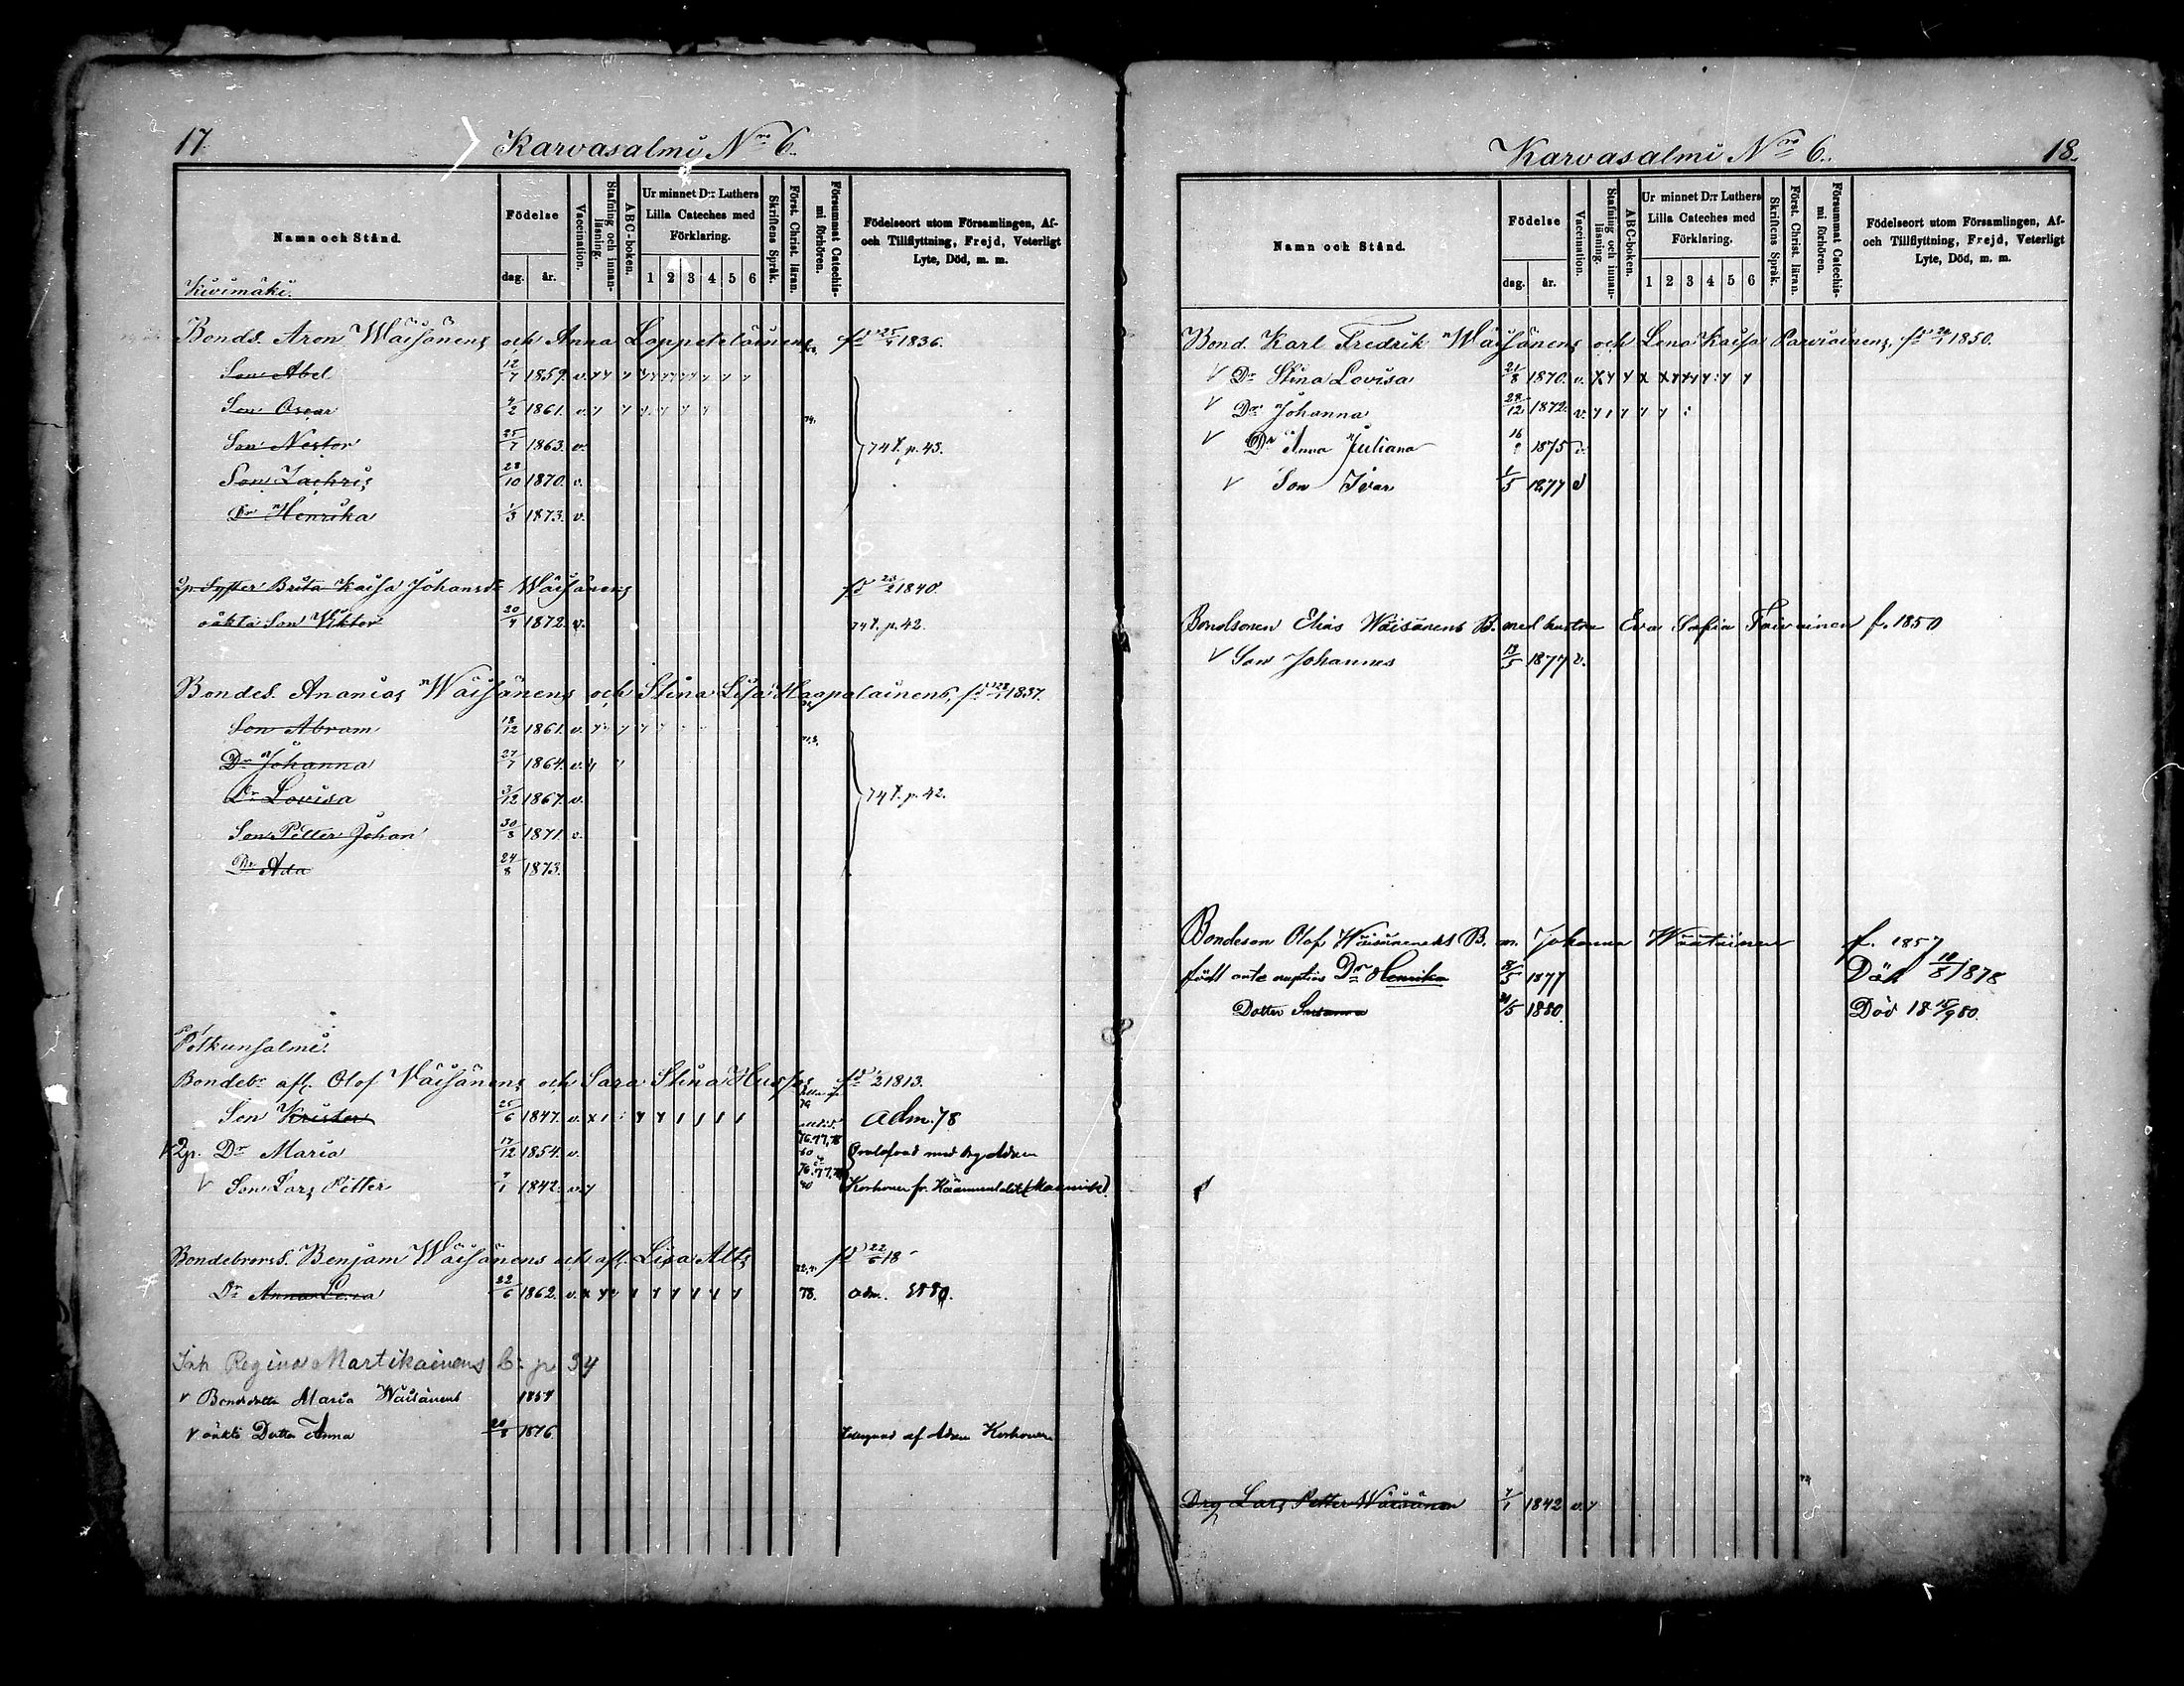 17.
Karvasalmi Nro 6.
Namn och Stånd.
Födelse
dag.
år.
Vaccination.
Stafning och innanläsning.
ABC-boken.
Ur minnet D:r Luthers Lilla Cateches med Förklaring.
1 2 3 4 5 6
Skriftens Språk.
Först. Christ. läran.
Försummat Catechismi förhören.
Födelseort utom Församlingen, Af- och Tillflyttning, Frejd, Veterligt Lyte, Död, m. m.
Kivimäki.
Bonds. Aron Wäisänens och Anna Loppeteläinens fd 25/4 1836.
Son Abel 12/7 1859. v.
Son Oscar 4/2 1861. v. 74.
Son Nestor 25/7 1863. v. 74 f. p. 43.
Son Zachris 28/10 1870. v.
Dr Henrika 1/3 1873. v.
2p. Syster Brita Kaisa Johansdr Wäisänens fd 1840.
oäkta Son Viktor 20/4 1872. v. 74 f. p. 42.
Bondes. Ananias Wäisänens och Stina Lisa Haapalainens, fd 1837.
Son Abram 18/12 1861. v.
Dr Johanna 27/7 1864. v.
Dr Lovisa 3/12 1867. v. 74 f. p. 42.
Son Petter Johan 30/8 1871. v.
Dr Ada 24/8 1873.
Petkunsalmi.
Bondebr. afl. Olof Wäisänens och Sara Stina Hussos fd 1813.
Son Krister 25/6 1847. v. adm. 78
2p. Dr Maria 17/12 1854. v. 76. 77, 78 med Adam
Son Lars Petter 7/1 1842. v. Korhonen fr.
Bondebrors S. Benjam Wäisänens och afl. Lisa Alts fd 22/6 18
Dr Anna Lena 22/6 1862. v. 78. adm. 1880.
Inh Regina Martikainens B: p 34
v Bondedotter Maria Wäisänens 1857
v oäkta Dotter Anna 20/8 1876. af Adam Korhonen
Karvasalmi Nro 6.
18.
Namn och Stånd.
Födelse
dag.
år.
Vaccination.
Stafning och innanläsning.
ABC-boken.
Ur minnet D:r Luthers Lilla Cateches med Förklaring.
1 2 3 4 5 6
Skriftens Språk.
Först. Christ. läran.
Försummat Catechismi förhören.
Födelseort utom Församlingen, Af- och Tillflyttning, Frejd, Veterligt Lyte, Död, m. m.
Bond. Karl Fredrik Wäisänens och Lena Kaisa Parviainens, fd 1850.
v Dr Stina Lovisa 21/8 1870. v.
v Dr Johanna 28/12 1872. v.
v Dr Anna Juliana 16 1875 v.
v Son Ivar 1/5 1877 v
Bondsonen Elias Wäisänens B. med hustru Eva Sofia Toivainen f. 1850
v Son Johannes 19/5 1877 v.
Bondeson Olof Wäisänens B. m. Johanna Väätäinen f. 1857
född ante nuptias Dr Henrika 8/5 1877 Död 10/8 1878
Dotter Susanna 31/5 1880 Död 18 15/9 80.
Drg Lars Petter Wäisänen 7/1 1842 v.